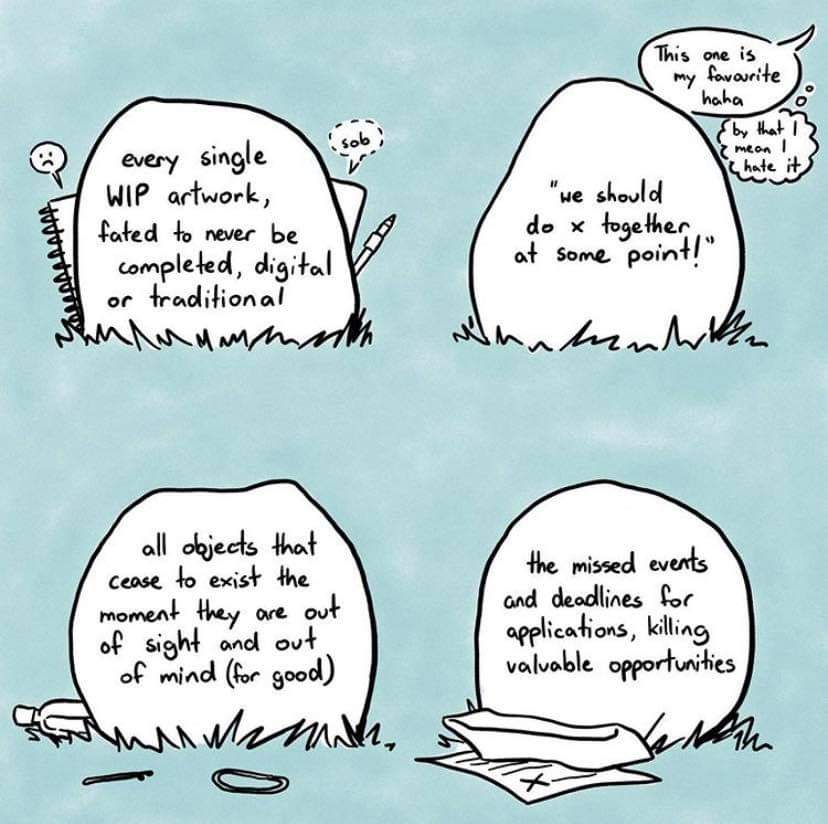 every single
WIP artwork,
fated to never be
completed, digital
or traditional
sob
This one is
my favourite
haha
by that I
mean I
hate it
"we should
do x together
at some point!"
all objects that
cease to exist the
moment they are out
of sight and out
of mind (for good)
the missed events
and deadlines for
applications, killing
valuable opportunities